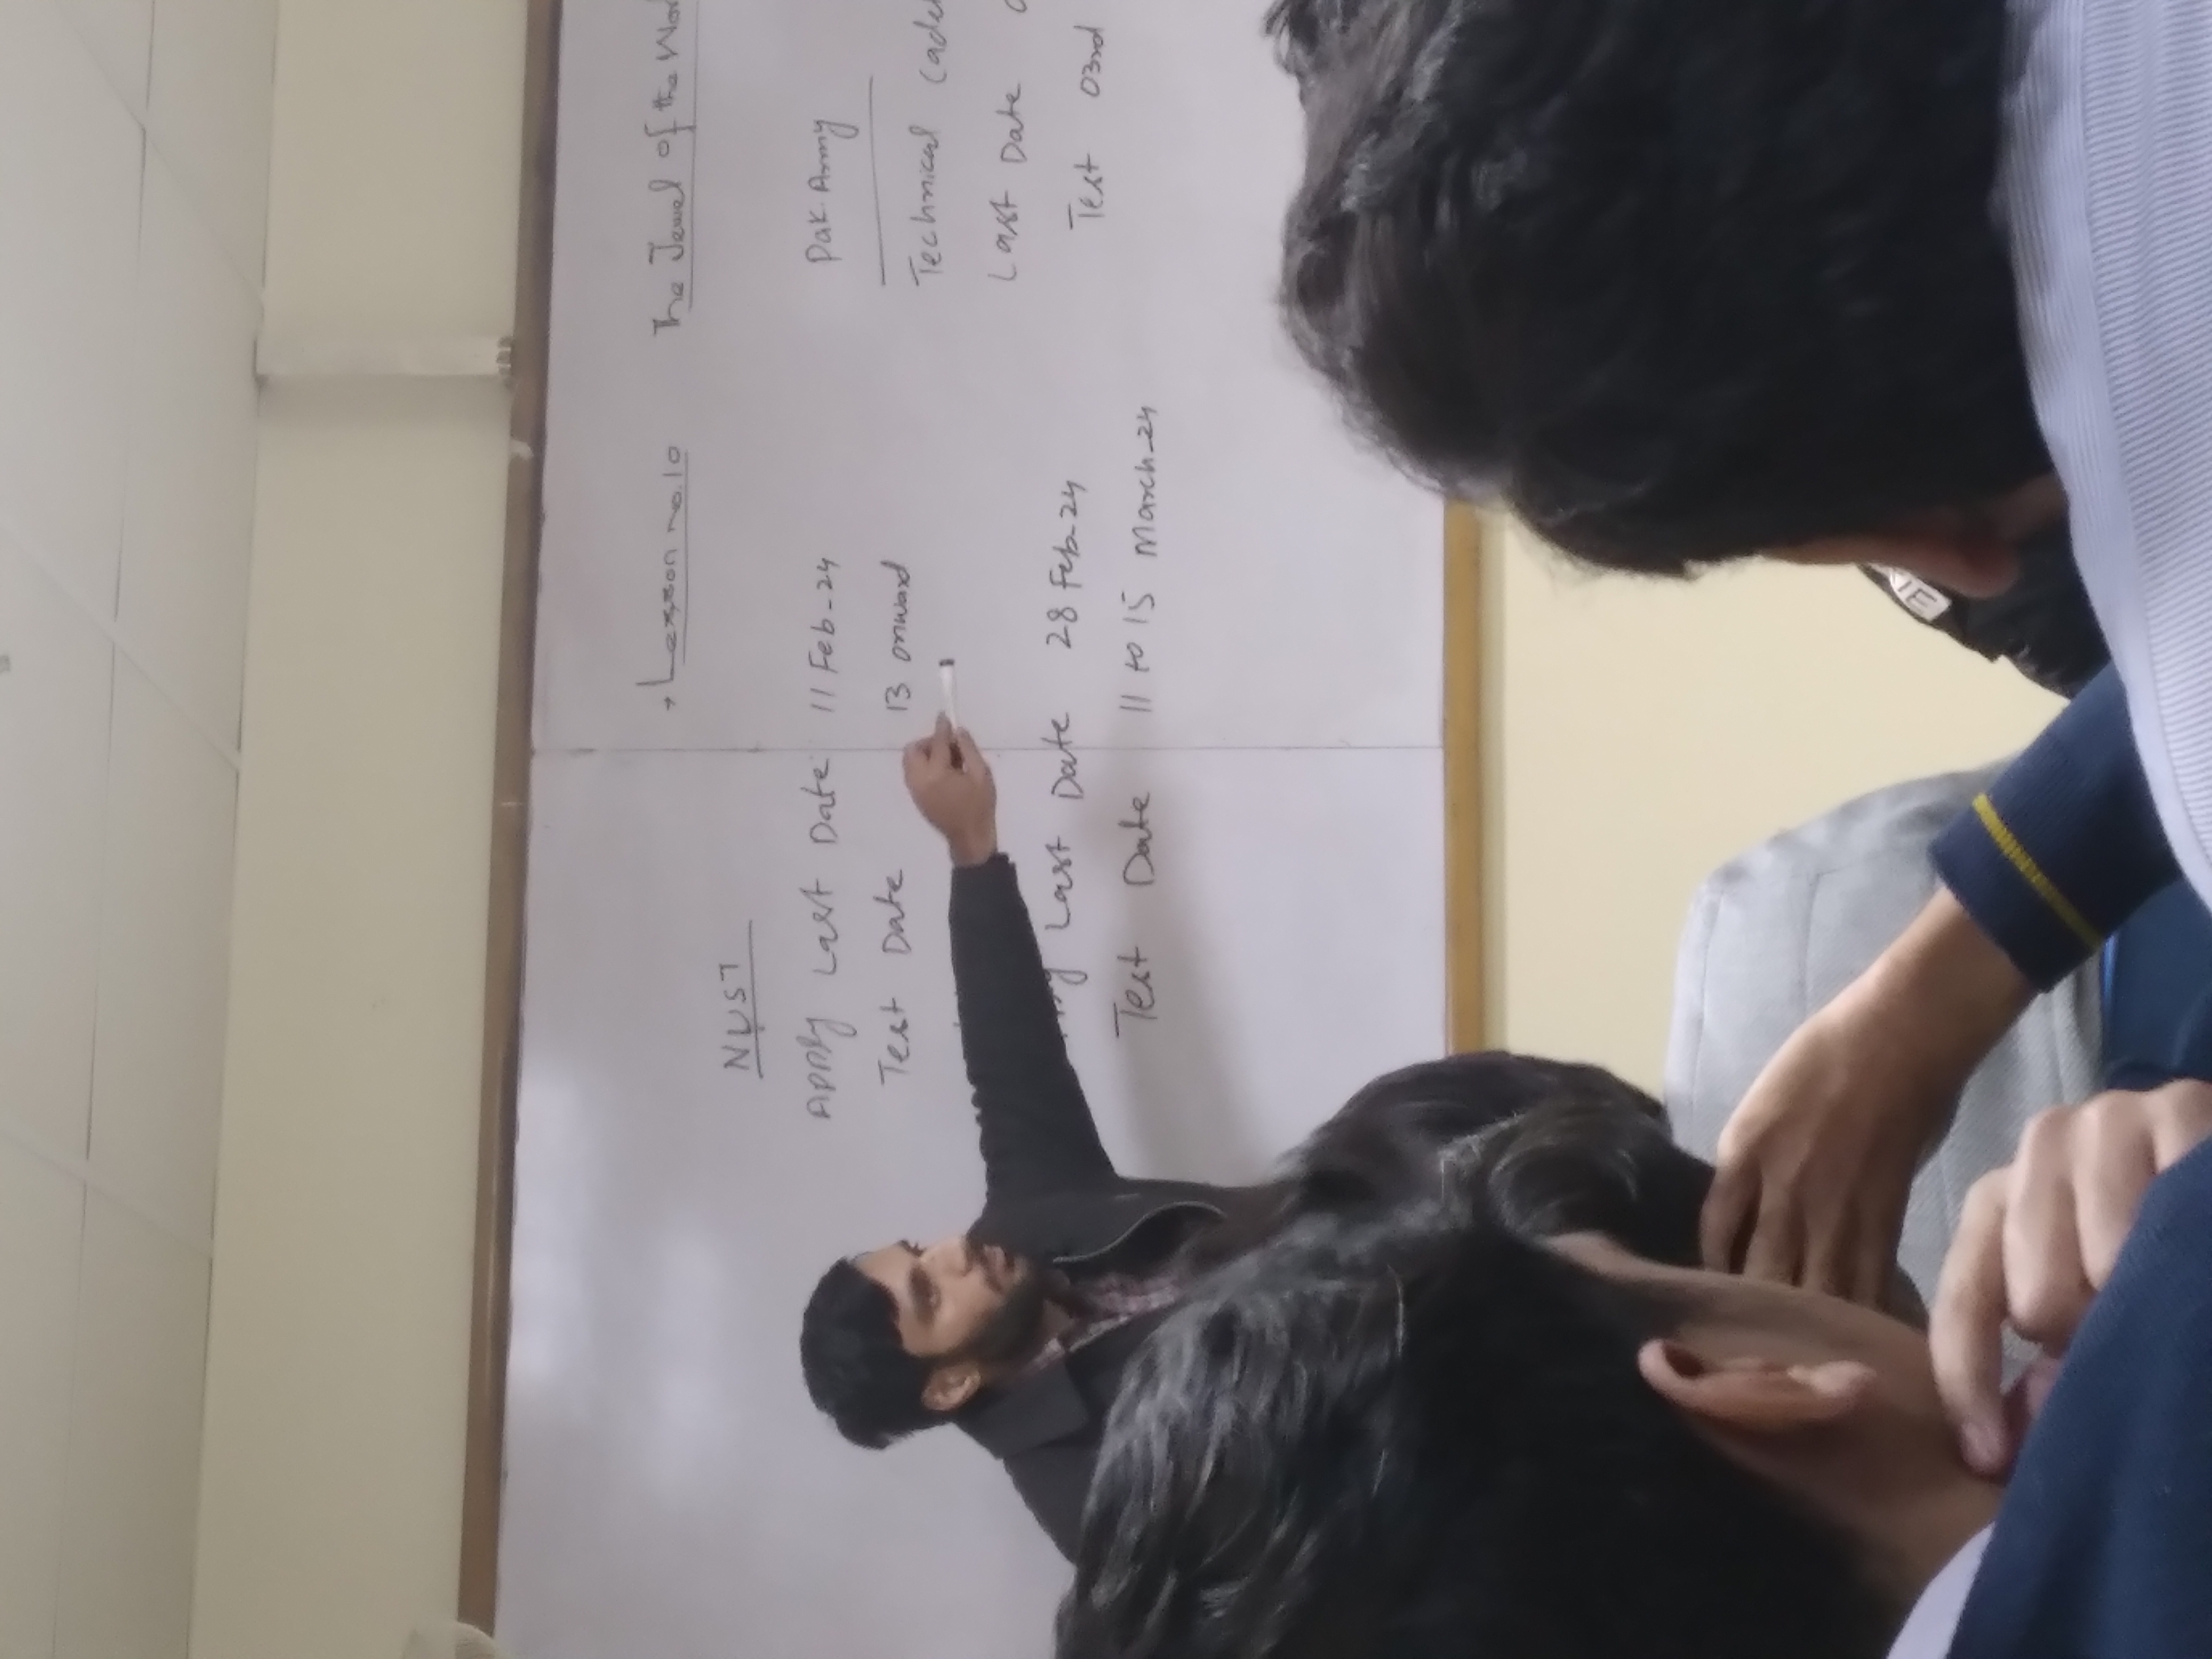 Lesson no.10 The Jewel of the
NUST
Apply Last Date 11 Feb-24
Test Date 13 onward
Last Date 28 Feb-24
Test Date 11 to 15 March-24
Pak Army
Technical
Last Date
Test 03rd